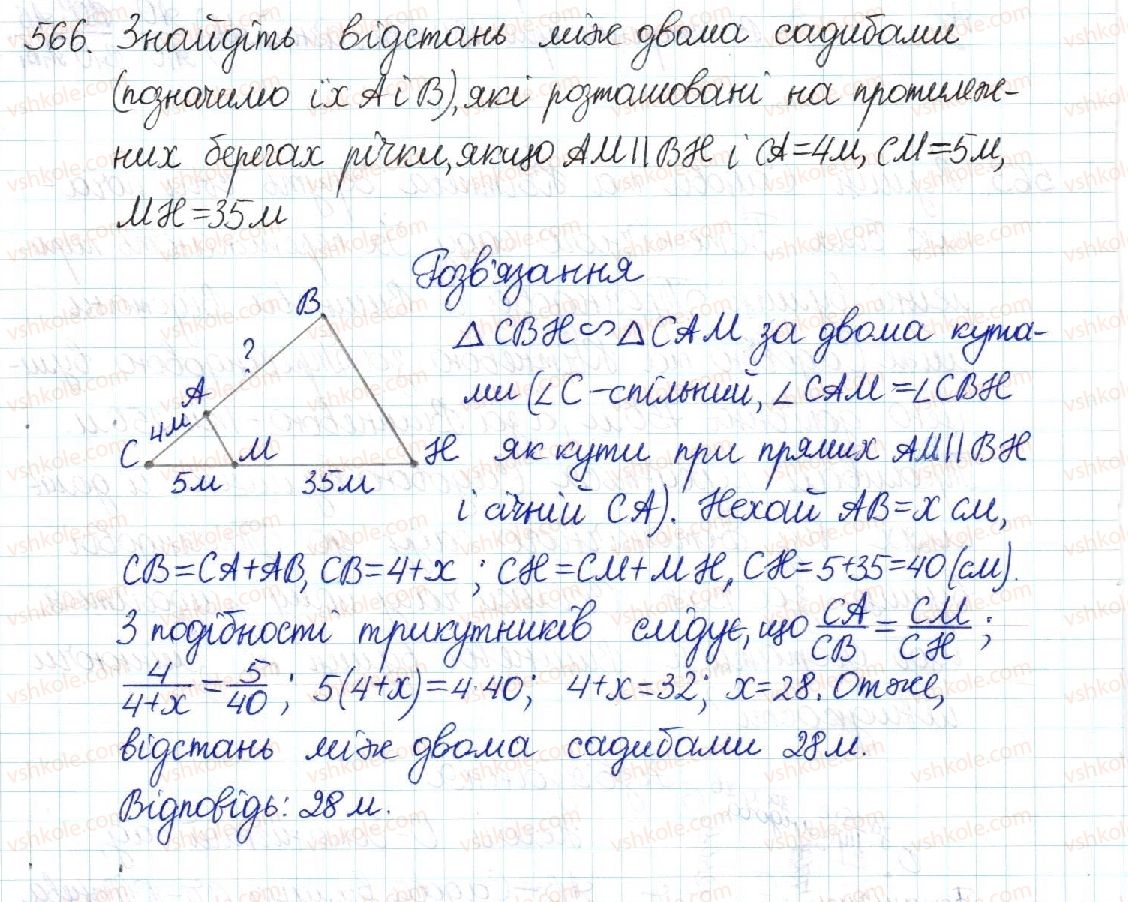 566. Знайдіть відстань між двома садибами
(позначимо їх A і B), які розташовані на протилеж-
них берегах річки, якщо AM||BH і CA=4м, CM=5м,
MH=35м
Розв'язання
B
?
A
4м
C
M
H
5м
35м
△CBH∽△CAM за двома кута-
ми (∠C-спільний, ∠CAM=∠CBH
як кути при прямих AM||BH
і січній CA). Нехай AB=x см,
CB=CA+AB, CB=4+x; CH=CM+MH, CH=5+35=40(см).
З подібності трикутників слідує, що CA/CB=CM/CH;
4/4+x=5/40; 5(4+x)=4·40; 4+x=32; x=28. Отже,
відстань між двома садибами 28м.
Відповідь: 28м.